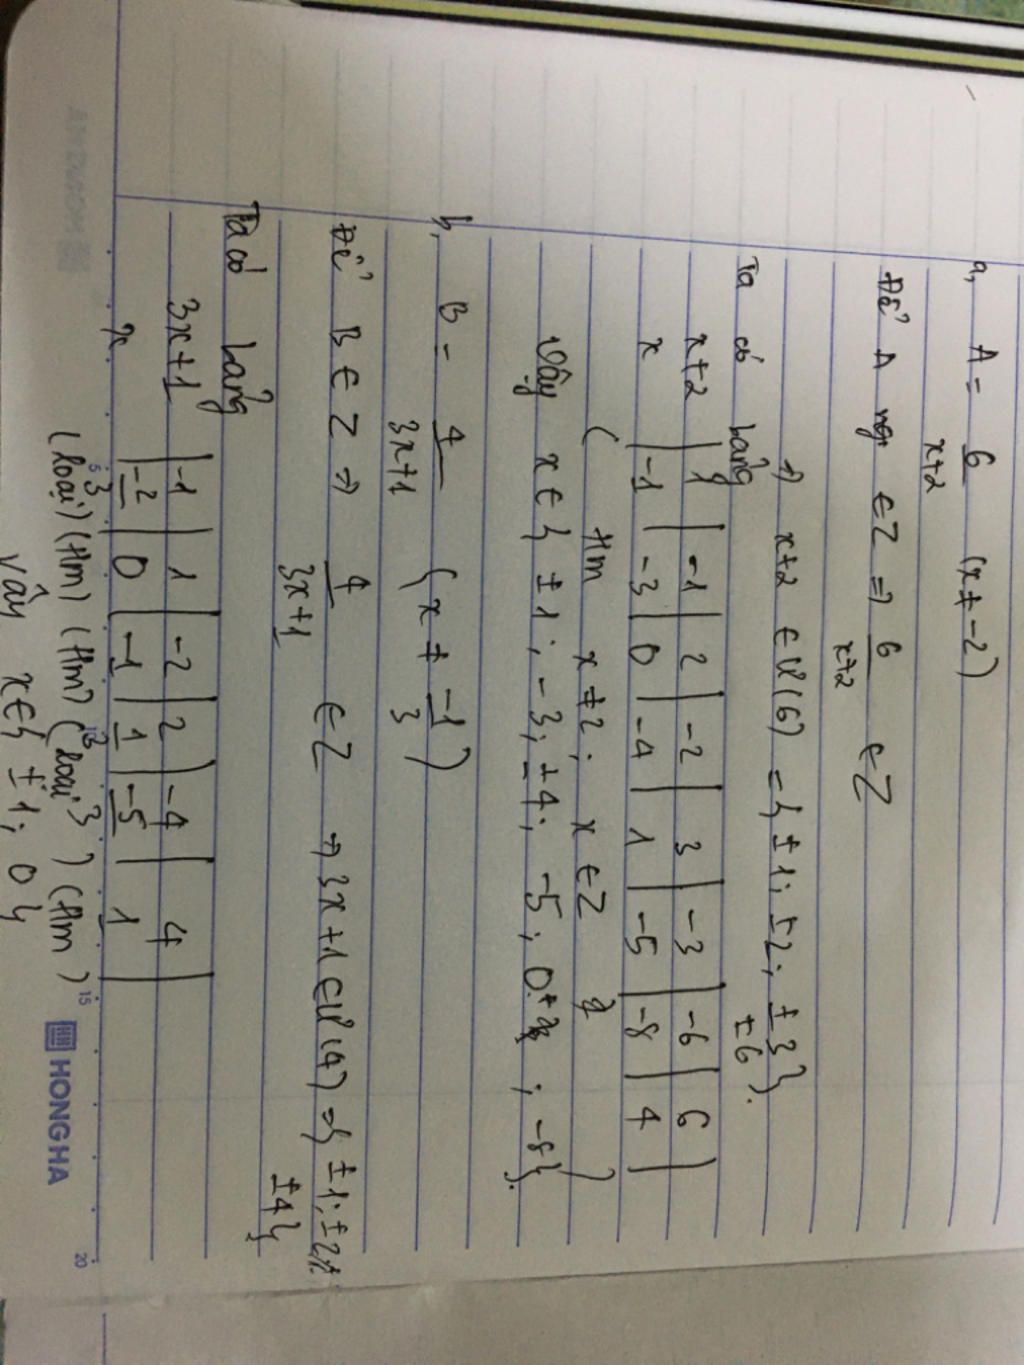 a, A = 6/x+2 (x ≠ -2)
Để A ng ∈ Z => 6/x+2 ∈ Z
=> x+2 ∈ Ư(6) = { ±1; ±2; ±3; ±6 }.
Ta có bảng
x+2 | 1 | -1 | 2 | -2 | 3 | -3 | -6 | 6 |
x | -1 | -3 | 0 | -4 | 1 | -5 | -8 | 4 |
( t/m x ≠ 2; x ∈ Z )
Vậy x ∈ { ±1; -3; ±4; -5; 0; -8 }.
b, B = 4/3x+1 (x ≠ -1/3)
Để B ∈ Z => 4/3x+1 ∈ Z => 3x+1 ∈ Ư(4) = { ±1; ±2; ±4 }
Ta có bảng
3x+1 | -1 | 1 | -2 | 2 | -4 | 4 |
x | -2/3 | 0 | -1 | 1/3 | -5/3 | 1 |
(loại) (t/m) (t/m) (loại) (t/m)
Vậy x ∈ { ±1; 0 }
HONG HA
5
15
20